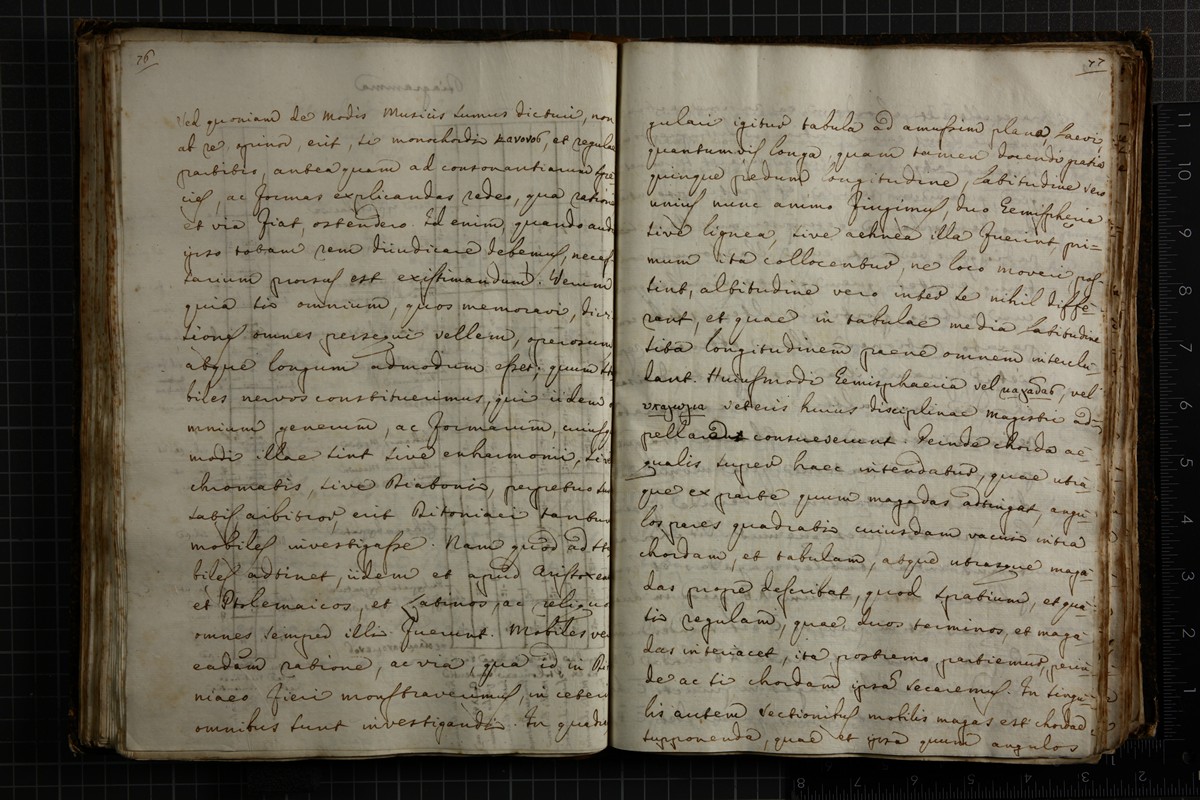 76
Sed quoniam de Modis Musicis sumus dicturi, non
ab re, opinor, erit, si monochordii κανονος, et regulae
partibus, antea quam ad consonantiarum spe-
cies, ac formas explicandas redeo, qua ratione
et via fiat, ostendero. Id enim, quando
ipso totam rem diiudicare debemus, neces-
sarium prorsus est existimandum. Verum
quia si omnium, quos memoravi, divi-
siones omnes persequi vellem, operosum
atque longum admodum esset; quum sta-
biles nervos constituerimus, qui iidem o-
mnium generum, ac formarum, cuius
modi illae sint sive enharmonii, sive
chromatis, sive diatonii, perpetuo sunt
satis, arbitror, erit Ditoniaei tantum
mobiles investigasse. Nam quod ad sta-
biles adtinet, iidem et apud Aristoxen
et Ptolemaicos, et Latinos, ac reliquos
omnes semper illi fuerunt. Mobiles ve
eadem ratione, ac via qua id in Di
niaeo fieri monstraverimus, in ceteris
omnibus sunt investigandi. In quadri
77
gulari igitur tabula ad amussim plana, laevi,
quantumvis longa, quam tamen docendi gratia
quinque pedum longitudine, latitudine vero
unius nunc animo fingimus, duo hemispheria
sive lignea, sive aehnea illa fuerint pri-
mum ita collocentur, ne loco moveri pos
sint, altitudine vero inter se nihil diffe-
rant, et quae in tabulae media latitudine
sita longitudinem paene omnem interclu
dant. Huiusmodi hemisphaeria vel μαγάδας, vel
υπαγωγεα veteris huius disciplinae magistri ad-
pellare consueverunt. Deinde chorda ae-
qualis super haec intendatur, quae utra-
que ex parte quum magadas adtingat, angu-
los pares quadratis cuiusdam vacui intra
chordam, et tabulam, atque utrasque maga-
das prope describat, quod spatium, et qua-
si regulam, quae duos terminos, et maga-
das interiacet, ita postremo partiemur, perin
de ac si chordam ipsam secaremus. In singu-
lis autem sectionibus mobilis magas est chordae
supponenda, quae et ipsa quum angulos